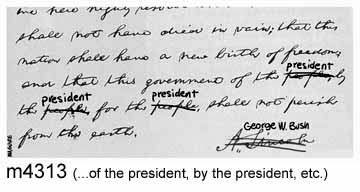 we here highly resolve that these
shall not have died in vain; that this
nation shall have a new birth of freedom;
and that this government of the president people by
the president people, for the president people, shall not perish
from the earth.
George W. Bush
A. Lincoln
m4313 (...of the president, by the president, etc.)